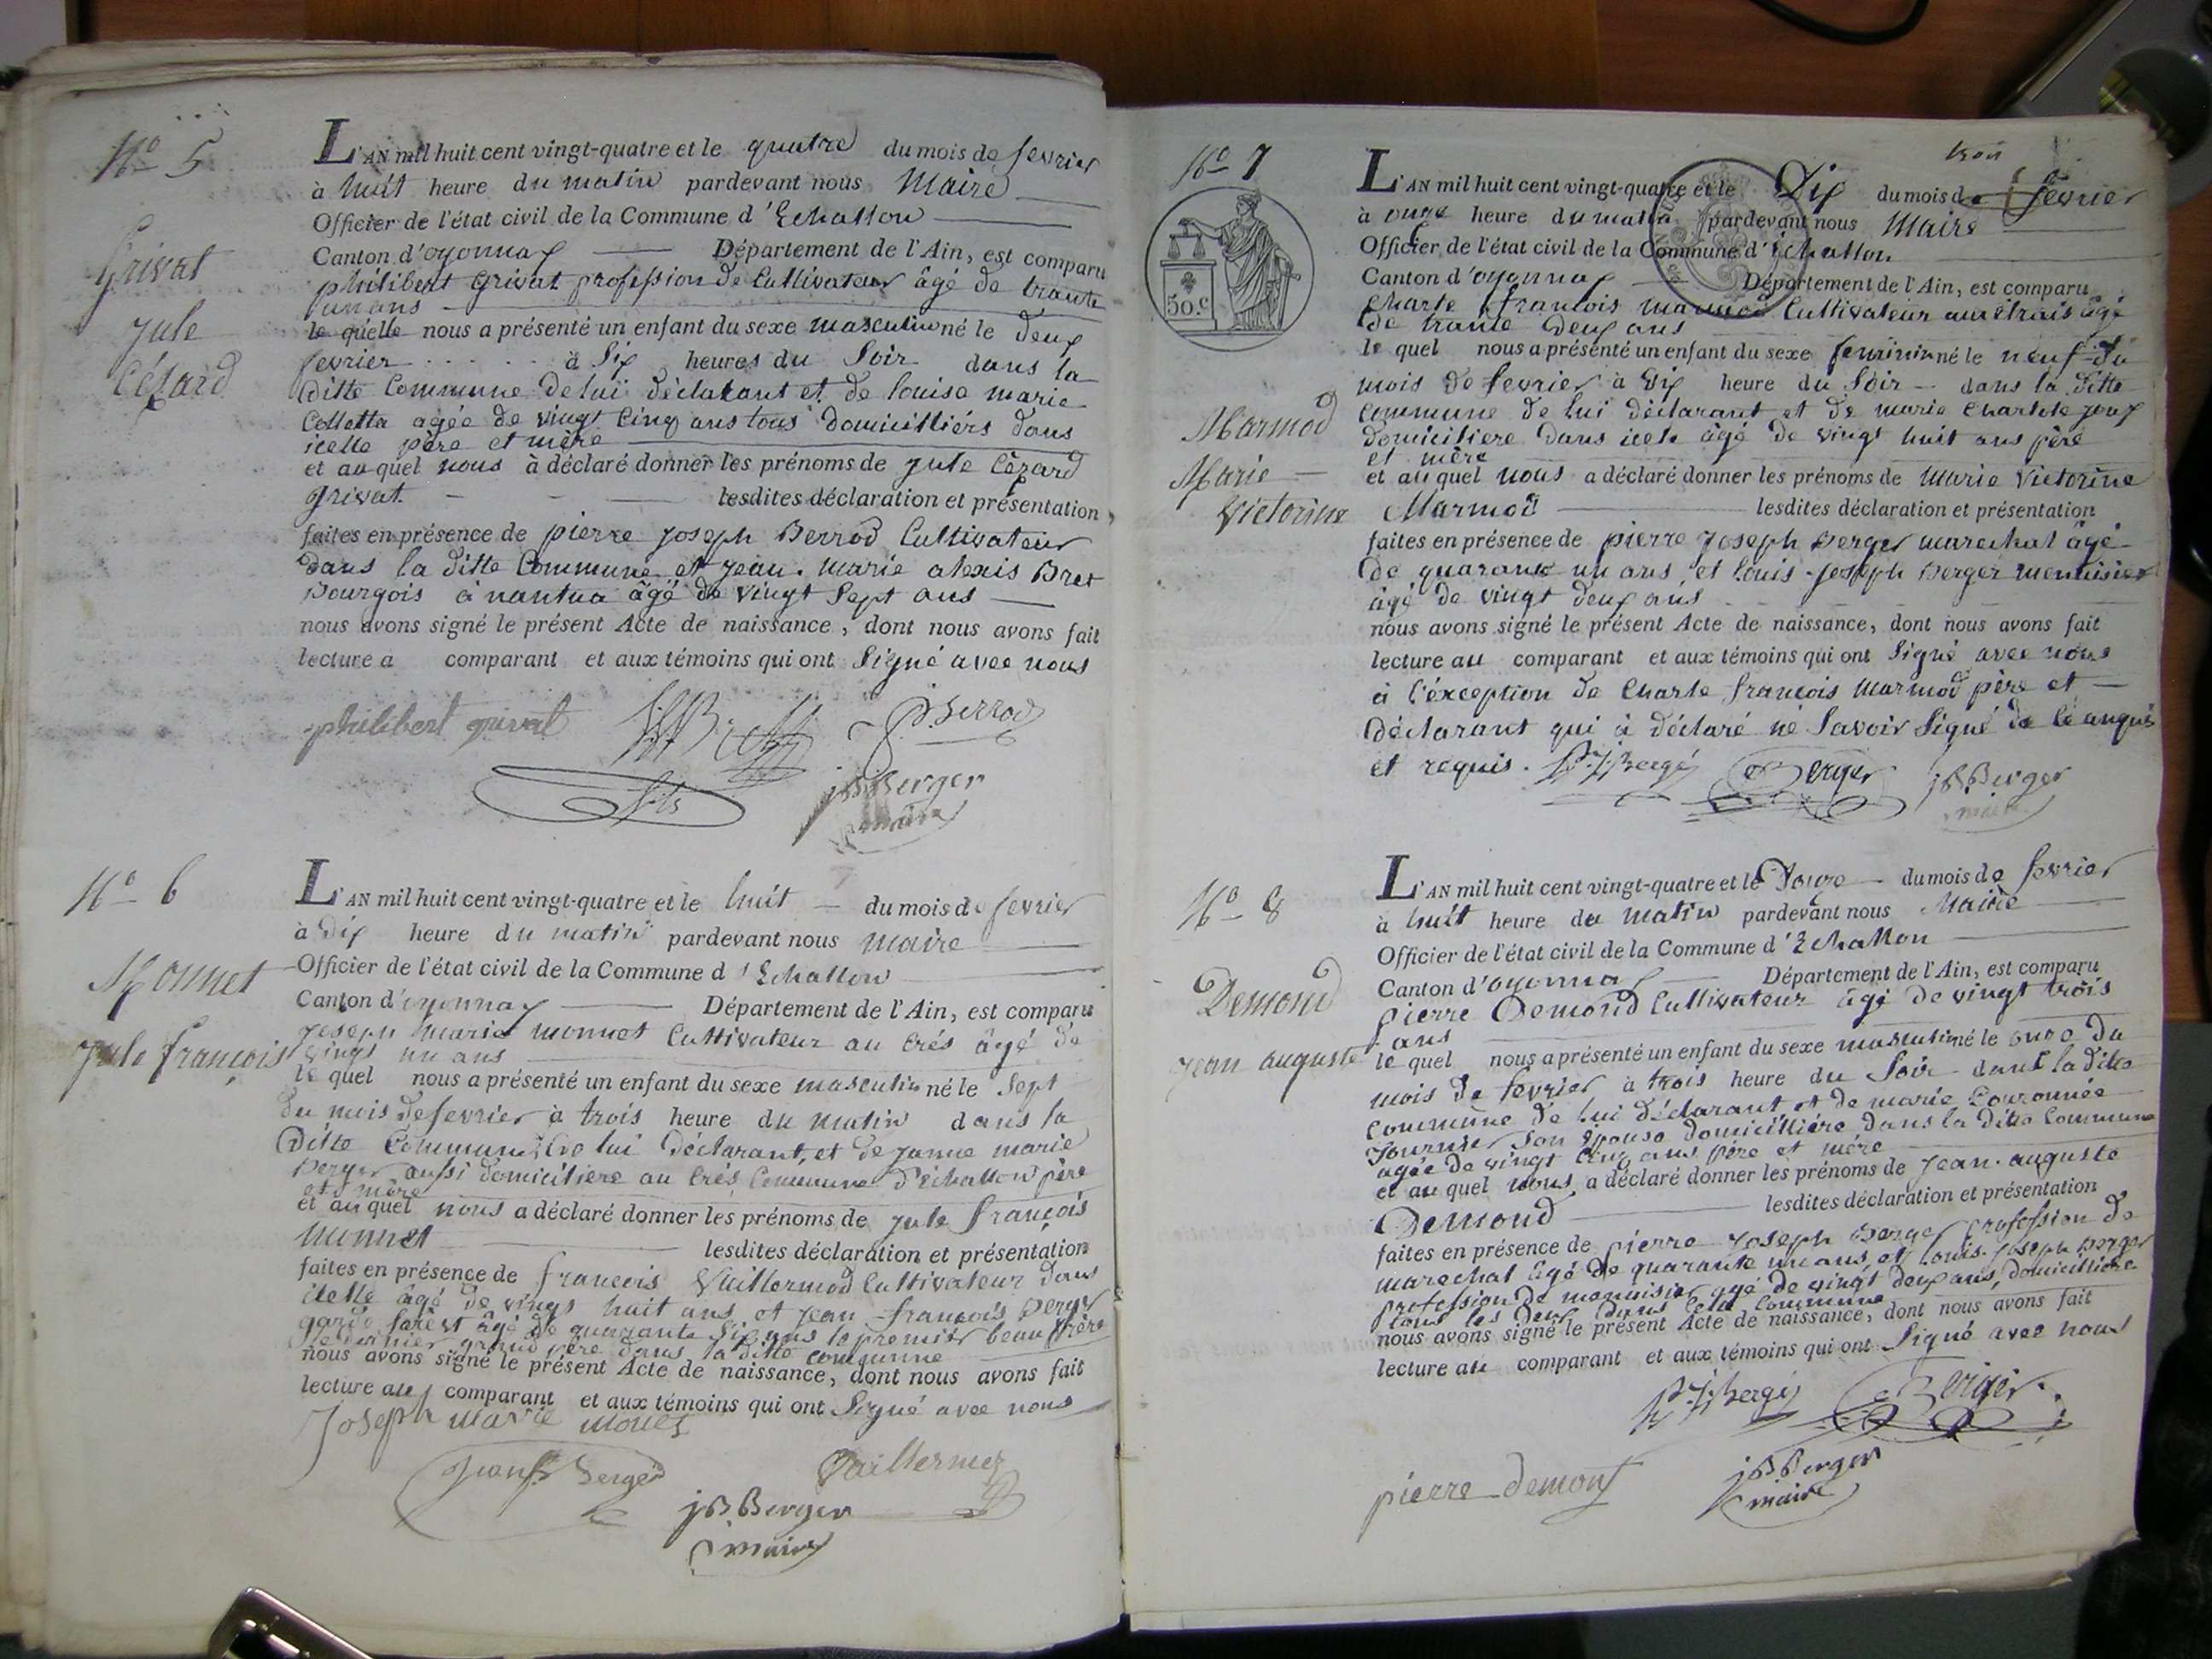 N° 5
Grivat
Jule
Cézard
L'AN mil huit cent vingt-quatre et le quatre du mois de fevrier
à huit heure du matin pardevant nous Maire
Officier de l'état civil de la Commune d'Echallon
Canton d'oyonnax Département de l'Ain, est comparu
philibert grivat profession de Cultivateur âgé de trante
un ans
le quelle nous a présenté un enfant du sexe masculin né le deux
fevrier à Six heures du Soir dans la
ditte Commune de lui déclarant et de louise marie
Colletta agée de vingt Cinq ans tous domicilliérs dans
icelle père et mère
et au quel nous à déclaré donner les prénoms de jule Cèzard
grivat lesdites déclaration et présentation
faites en présence de pierre joseph Berrod Cultivateur
dans la ditte Commune et jean. marie alexis Bret
Bourgois à nantua âgé de vingt Sept ans
nous avons signé le présent Acte de naissance, dont nous avons fait
lecture a comparant et aux témoins qui ont Signé avec nous
philibert grivat
Berrod
fils
jB Berger
maire
N° 6
Monnet
Jule françois
L'AN mil huit cent vingt-quatre et le huit du mois de fevrier
à Dix heure du matin pardevant nous maire
Officier de l'état civil de la Commune d'Echallon
Canton d'oyonnax Département de l'Ain, est comparu
joseph marie monnet Cultivateur au Crés âgé de
vingt un ans
le quel nous a présenté un enfant du sexe masculin né le Sept
du mois de fevrier à trois heure du matin dans la
Ditte Commune De lui déclarant, et de janne marie
Berger aussi domiciliere au Crés Commune d'échallon père
et mère
et au quel nous a déclaré donner les prénoms de jule françois
monnet lesdites déclaration et présentation
faites en présence de françois Vuillermod Cultivateur dans
icelle âgé de vingt huit ans, et jean-françois Berger
garde forest âgé de quarante Six ans le premier beau frère
Le dernier grand père dans la ditte commune
nous avons signé le présent Acte de naissance, dont nous avons fait
lecture au comparant et aux témoins qui ont Signé avec nous
Joseph marie
jB Berger
maire
N° 7
50.c
Marmod
Marie
Victorine
L'AN mil huit cent vingt-quatre et le Dix du mois de fevrier
à onze heure du matin pardevant nous Maire
Officier de l'état civil de la Commune d'échallon
Canton d'oyonnax Département de l'Ain, est comparu
Charle françois marmod Cultivateur âgé
de trante deux ans
le quel nous a présenté un enfant du sexe feminin né le neuf du
mois de fevrier à Dix heure du Soir dans la ditte
commune de lui déclarant et de marie Charlote
domiciliere dans icele âgé de vingt huit ans père
et mère
et au quel nous a déclaré donner les prénoms de Marie Victorine
Marmod lesdites déclaration et présentation
faites en présence de pierre joseph Berger marechal âgé
de quarante un ans, et louis-joseph Berger menuisier
âgé de vingt deux ans
nous avons signé le présent Acte de naissance, dont nous avons fait
lecture au comparant et aux témoins qui ont Signé avec nous
à l'éxception de Charle françois Marmod père et
déclarant qui à déclaré né Savoir Signé de
et requis. P. J. Bergé Berger jB Berger
maire
N° 8
Demond
jean auguste
L'AN mil huit cent vingt-quatre et le Douze du mois de fevrier
à huit heure du matin pardevant nous Maire
Officier de l'état civil de la Commune d'Echallon
Canton d'oyonnax Département de l'Ain, est comparu
pierre Demond Cultivateur âgé de vingt trois
ans
le quel nous a présenté un enfant du sexe masculin né le onze du
mois de fevrier à trois heure du Soir dans la ditte
commune de lui déclarant et de marie Couronnée
Tournier Son épouse domicilliére dans la ditte Commune
agée de vingt Cinq ans père et mére
et au quel nous a déclaré donner les prénoms de jean. auguste
Demond lesdites déclaration et présentation
faites en présence de pierre joseph Berger profession de
marechal âgé de quarante un ans, et louis. joseph Berger
profession de menuisier agé de vingt deux ans, domicilliére
tous les deux dans Cette Commune
nous avons signé le présent Acte de naissance, dont nous avons fait
lecture au comparant et aux témoins qui ont Signé avec nous
P. J. Bergé Berger
pierre demont
jB Berger
maire